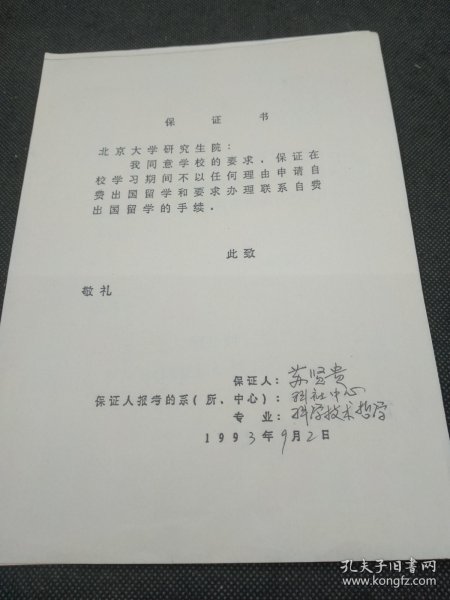 保证书
北京大学研究生院：
我同意学校的要求，保证在
校学习期间不以任何理由申请自
费出国留学和要求办理联系自费
出国留学的手续．
此致
敬礼
保证人：苏贤贵
保证人报考的系（所、中心）：科社中心
专业：科学技术哲学
1993年9月2日
孔夫子旧书网
www.kongfz.com